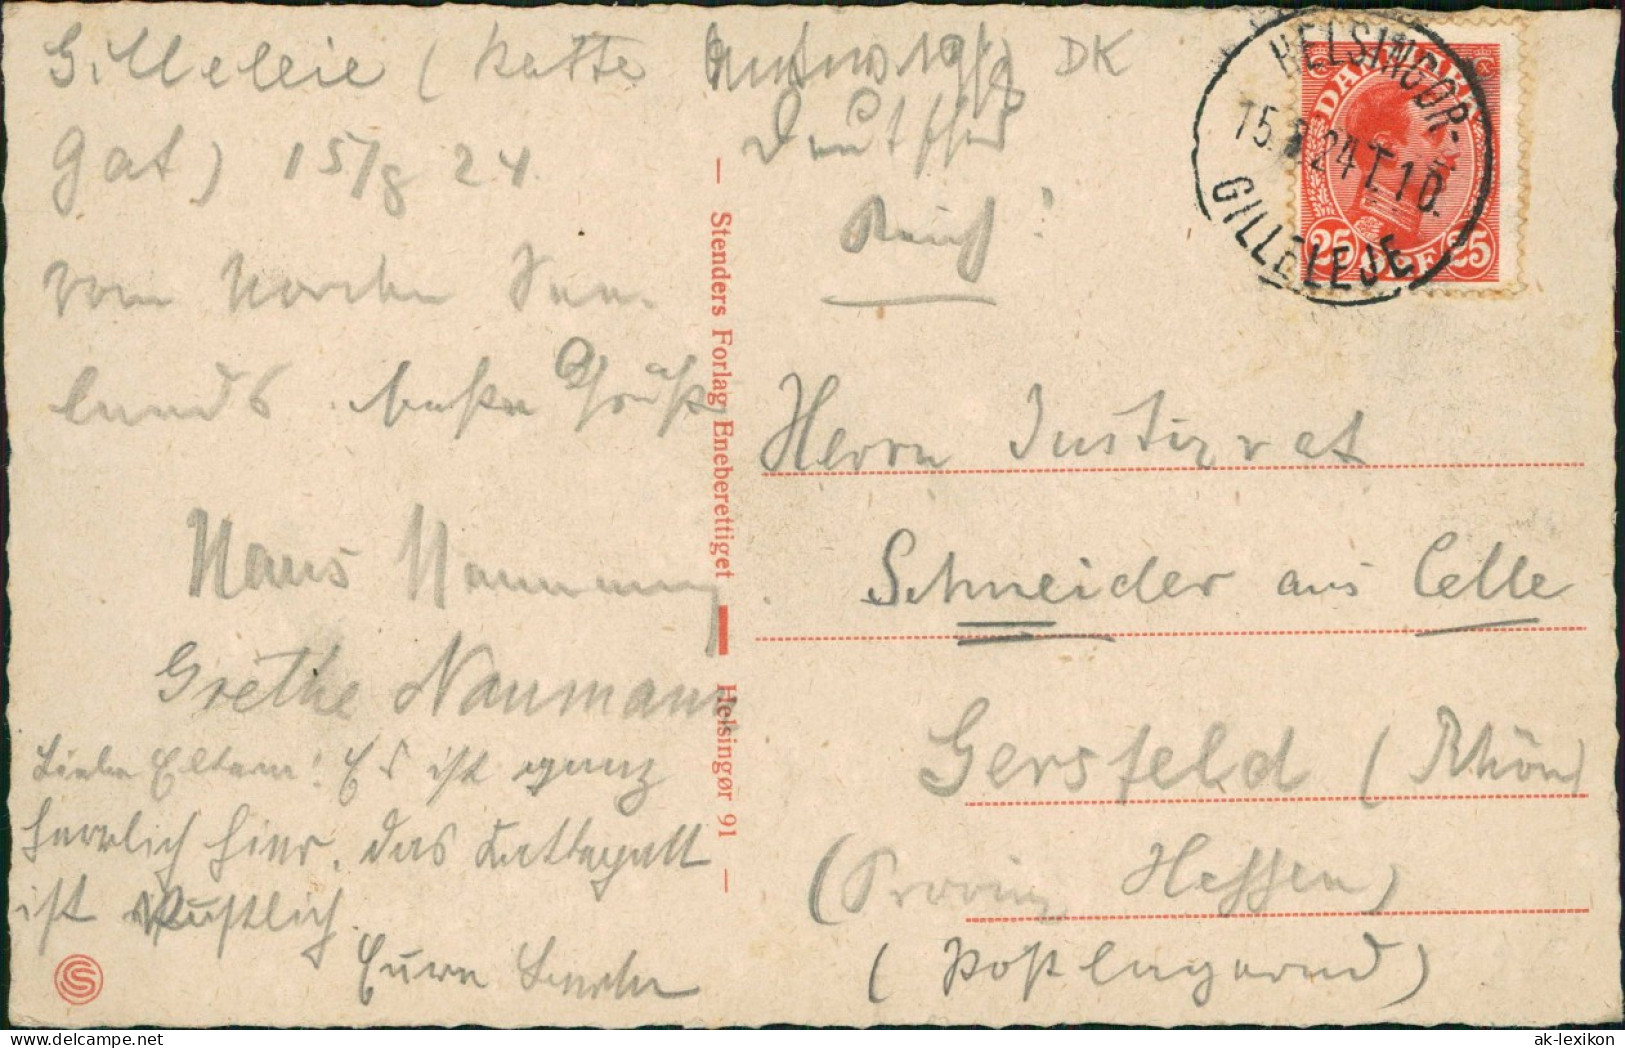 Gilleleie (Katte
gat) 15/8 24.
vom Norden See-
lands beste Grüße
Hans Naumann
Grethe Naumann
Liebe Eltern! Es ist ganz
herrlich hier, das Kattegatt
ist
Eure
DK
Deutsches
Reich!
HELSINGØR-
15. 24 T.10.
GILLELEJE
DANMARK
25 ØRE 25
Stenders Forlag Eneberettiget — Helsingør 91
Herrn Justizrat
Schneider aus Celle
Gersfeld (Rhön)
(Provinz Hessen)
(Postlagernd)
S
ak-lexikon